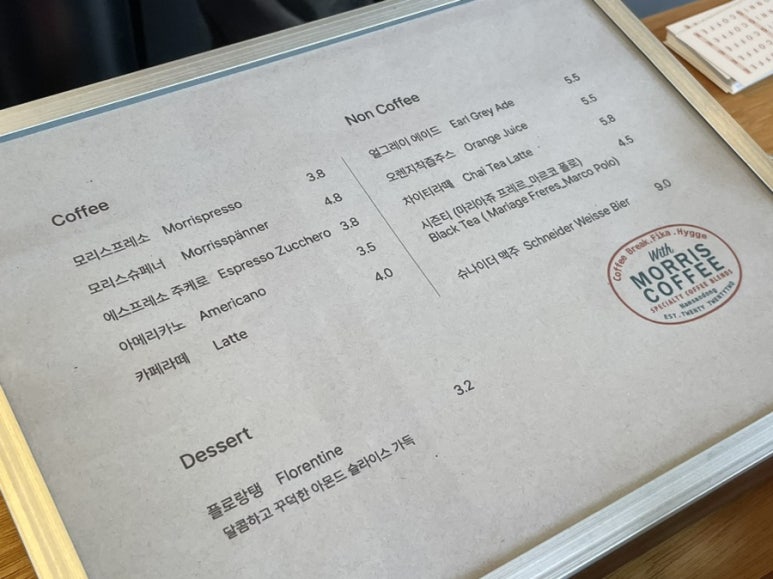 Coffee
모리스프레소 Morrispresso 3.8
모리스슈페너 Morrisspänner 4.8
에스프레소 주케로 Espresso Zucchero 3.8
아메리카노 Americano 3.5
카페라떼 Latte 4.0
Non Coffee
얼그레이 에이드 Earl Grey Ade 5.5
오렌지착즙주스 Orange Juice 5.5
차이티라떼 Chai Tea Latte 5.8
시즌티 (마리아쥬 프레르_마르코 폴로) 4.5
Black Tea ( Mariage Freres_Marco Polo)
슈나이더 맥주 Schneider Weisse Bier 9.0
Coffee Break.Fika.Hygge
With
MORRIS
COFFEE
SPECIALTY COFFEE BLENDS
Namsandong
EST. TWENTY TWENTYTWO
Dessert
플로랑탱 Florentine 3.2
달콤하고 꾸덕한 아몬드 슬라이스 가득